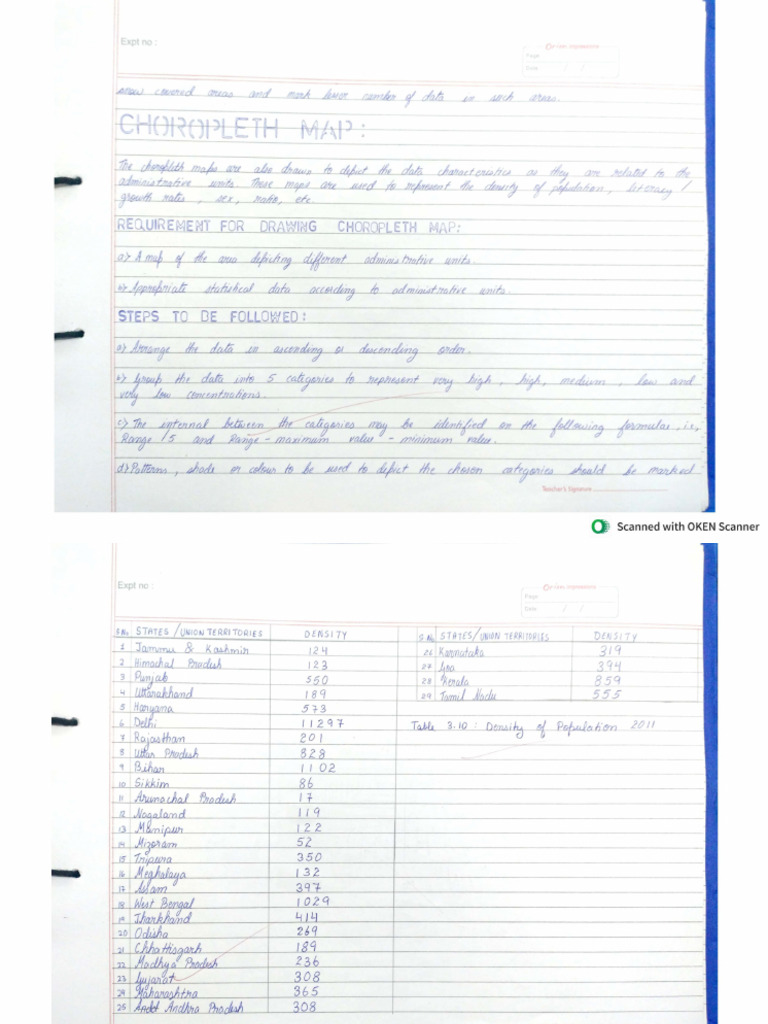 Expt no :
Page
Date / /
snow covered areas and mark lesser number of data in such areas.
CHOROPLETH MAP :
The choropleth maps are also drawn to depict the data characteristics as they are related to the
administrative units. These maps are used to represent the density of population, literacy /
growth rates, sex, ratio, etc.
REQUIREMENT FOR DRAWING CHOROPLETH MAP:
a) A map of the area depicting different administrative units.
b) Appropriate statistical data according to administrative units.
STEPS TO BE FOLLOWED:
a) Arrange the data in ascending or descending order.
b) Group the data into 5 categories to represent very high, high, medium, low and
very low concentrations.
c) The internal between the categories may be identified on the following formulae i.e,
Range / 5 and Range - maximum value - minimum value.
d) Patterns, shade or colour to be used to depict the chosen categories should be marked
Teacher's Signature
Scanned with OKEN Scanner
Expt no :
Page
Date / /
S.No. STATES / UNION TERRITORIES DENSITY
1 Jammu & Kashmir 124
2 Himachal Pradesh 123
3 Punjab 550
4 Uttarakhand 189
5 Haryana 573
6 Delhi 11297
7 Rajasthan 201
8 Uttar Pradesh 828
9 Bihar 1102
10 Sikkim 86
11 Arunachal Pradesh 17
12 Nagaland 119
13 Manipur 122
14 Mizoram 52
15 Tripura 350
16 Meghalaya 132
17 Assam 397
18 West Bengal 1029
19 Jharkhand 414
20 Odisha 269
21 Chhattisgarh 189
22 Madhya Pradesh 236
23 Gujarat 308
24 Maharashtra 365
25 Andhra Pradesh 308
S.No. STATES / UNION TERRITORIES DENSITY
26 Karnataka 319
27 Goa 394
28 Kerala 859
29 Tamil Nadu 555
Table 3.10 : Density of Population 2011